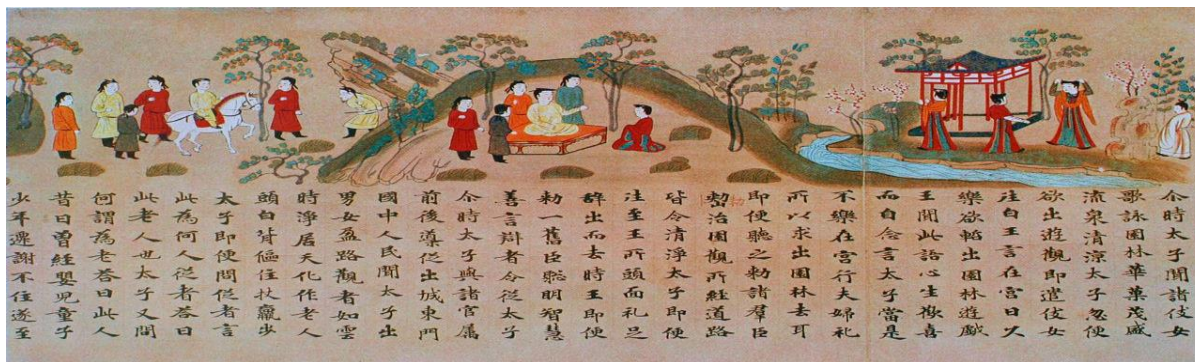 尒時太子聞諸伎女
歌詠園林華菓茂盛
流泉清涼太子忽便
欲出遊觀即遣伎女
往白王言在宮日久
樂欲蹔出園林遊戯
王聞此語心生歡喜
而自念言太子當是
不樂在宮行夫婦礼
所以求出園林去耳
即便聽之勑諸羣臣
治園觀所経道路
皆令清淨太子即便
往至王所頭面礼足
辞出而去時王即便
勑一舊臣聡明智慧
善言辯者令従太子
尒時太子與諸官属
前後導従出城東門
國中人民聞太子出
男女盈路觀者如雲
時淨居天化作老人
頭白背傴住杖羸步
太子即便問従者言
此為何人従者荅曰
此老人也太子又問
何謂為老荅曰此人
昔日曾経嬰児童子
少年遷謝不住遂至